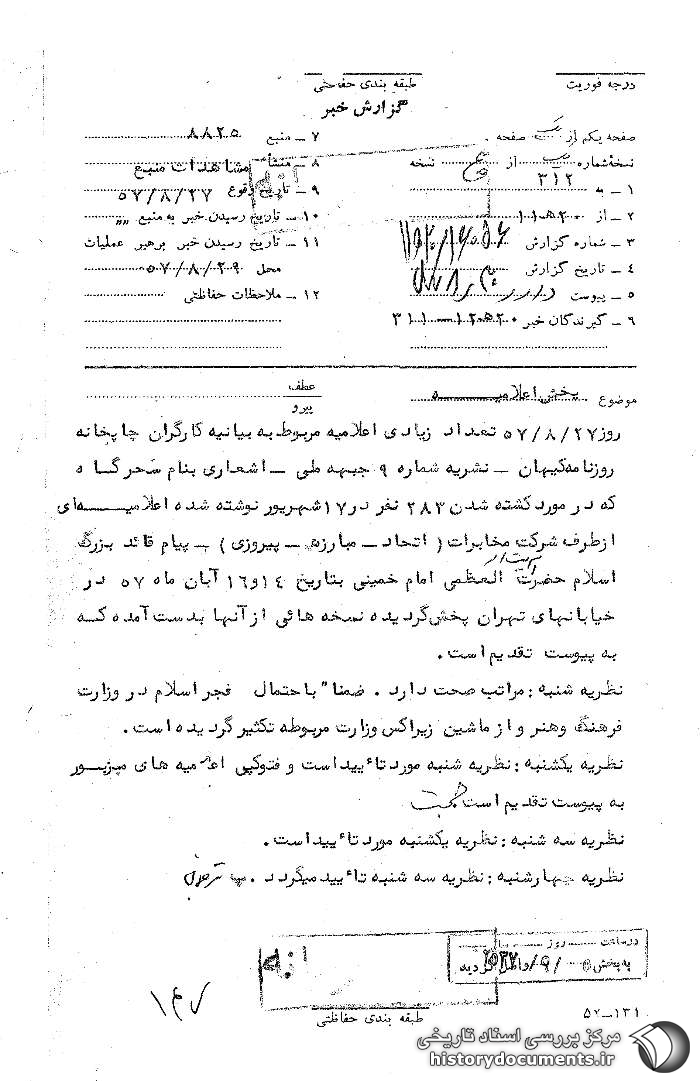 درجه فوریت
طبقه بندی حفاظتی
گزارش خبر
صفحه یکم از یک صفحه
نسخهٔ شماره یک از نسخه
۱ – به ۳۱۲
۲ – از ۱۱ﻫ۲۰
۳ – شماره گزارش
۴ – تاریخ گزارش
۵ – پیوست دارد
۶ – گیرندگان خبر ۳۱۱–۱۲ﻫ۲۰
۷ – منبع ۸۸۲۵
۸ – منشأ مشاهدات منبع
۹ – تاریخ وقوع ۵۷/۸/۲۷
۱۰ – تاریخ رسیدن خبر به منبع ,,
۱۱ – تاریخ رسیدن خبر برهبر عملیات
محل ۵۷/۸/۲۹
۱۲ – ملاحظات حفاظتی
موضوع پخش اعلامیه
عطف
پیرو
روز ۵۷/۸/۲۷ تعداد زیادی اعلامیه مربوط به بیانیه کارگران چاپخانه
روزنامه کیهان – نشریه شماره ۹ جبهه ملی – اشعاری بنام سحرگاه
که در مورد کشته شدن ۲۸۳ نفر در ۱۷ شهریور نوشته شده اعلامیه‌ای
ازطرف شرکت مخابرات ( اتحاد – مبارزه – پیروزی ) – پیام قائد بزرگ
اسلام حضرت آیت‌اله العظمی امام خمینی بتاریخ ۱۴و۱۶ آبان ماه ۵۷ در
خیابانهای تهران پخش گردیده نسخه هائی از آنها بدست آمده که
به پیوست تقدیم است .
نظریه شنبه : مراتب صحت دارد . ضمنا" باحتمال فجر اسلام در وزارت
فرهنگ وهنر و از ماشین زیراکس وزارت مربوطه تکثیر گردیده است .
نظریه یکشنبه : نظریه شنبه مورد تائید است و فتوکپی اعلامیه های مزبور
به پیوست تقدیم است
نظریه سه شنبه : نظریه یکشنبه مورد تائید است .
نظریه چهارشنبه : نظریه سه شنبه تائید میگردد .
روز
به بخش
طبقه بندی حفاظتی
۵۲–۱۳۱
مرکز بررسی اسناد تاریخی
historydocuments.ir